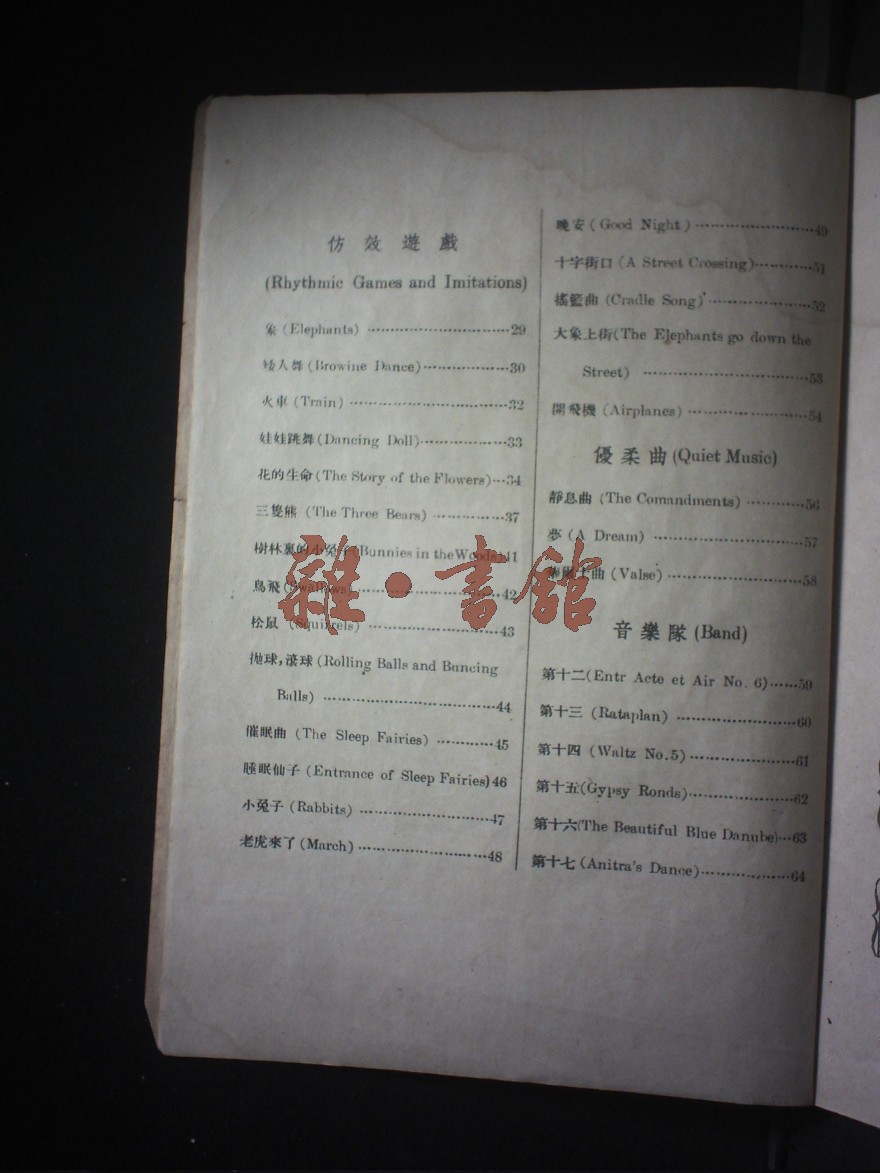 仿效遊戲
(Rhythmic Games and Imitations)
象 (Elephants) ······························29
矮人舞 (Browine Dance)··················30
火車 (Train) ··································32
娃娃跳舞(Dancing Doll)···················33
花的生命(The Story of the Flowers)···34
三隻熊 (The Three Bears) ···············37
樹林裏的小兔子(Bunnies in the Woods)41
鳥飛 (Swallows)······························42
松鼠 (Squirrels) ····························43
拋球,滾球(Rolling Balls and Buncing
Balls) ····································44
催眠曲 (The Sleep Fairies) ············45
睡眠仙子(Entrance of Sleep Fairies)46
小兔子(Rabbits) ····························47
老虎來了(March)····························48
晚安(Good Night) ·························49
十字街口(A Street Crossing)············51
搖籃曲 (Cradle Song) ·····················52
大象上街(The Elephants go down the
Street) ··································53
開飛機 (Airplanes) ························54
優柔曲(Quiet Music)
靜息曲 (The Comandments) ············56
夢 (A Dream) ································57
士曲 (Valse) ····························58
音樂隊(Band)
第十二(Entr Acte et Air No. 6)······59
第十三 (Rataplan) ·························60
第十四 (Waltz No.5)·······················61
第十五(Gypsy Ronds)······················62
第十六(The Beautiful Blue Danube)···63
第十七(Anitra's Dance)···················64
雜·書館